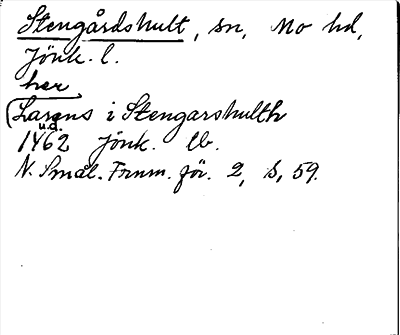 Stengårdshult, sn, Mo hd,
Jönk. l.
her
(Larens i Stengarshulth
u.d.
1462 Jönk. lb.
N. Smål. Fornm. för. 2, s, 59.